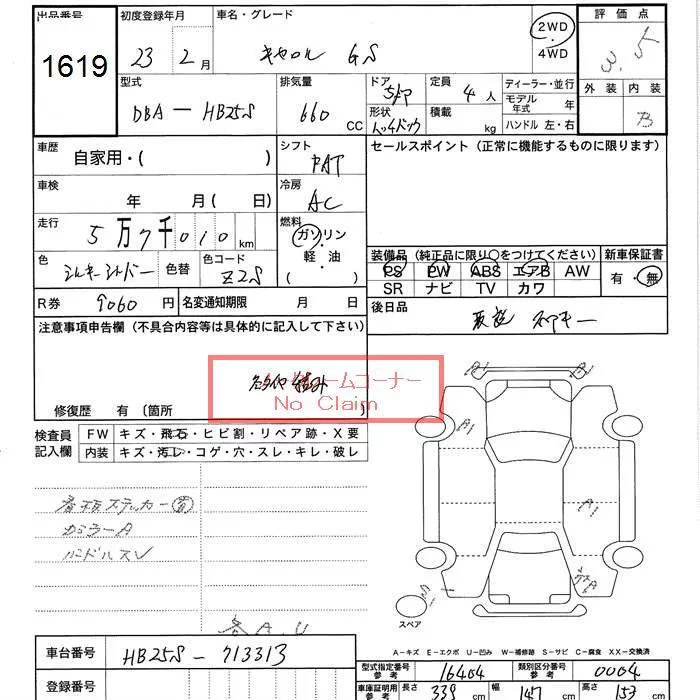 出品番号 初度登録年月 車名・グレード 評価点
1619 23 2月 キャロル GS 2WD 4WD 3.5
型式 排気量 ドア 定員 ディーラー・並行 外装 内装
DBA－HB25S 660 CC 5ドア 4人 モデル年式 年 B
形状 積載 kg ハンドル 左・右
車歴 自家用・( ) シフト FAT セールスポイント（正常に機能するものに限ります）
車検 年 月( 日) 冷房 AC
走行 5万7千010km 燃料 ガソリン・軽油 ( )
色 シルキーシャドー 色替 色コード Z2S
装備品（純正品に限り○をつけてください） 新車保証書
PS PW ABS エアB AW 有・無
SR ナビ TV カワ
R券 9060円 名変通知期限 月 日 後日品
取説 スペアキー
注意事項申告欄（不具合内容等は具体的に記入して下さい）
クレームコーナー
No Claim
修復歴 有（箇所 ）
検査員記入欄 FW キズ・飛石・ヒビ割・リペア跡・X要
内装 キズ・汚レ・コゲ・穴・スレ・キレ・破レ
A1
ハンドルスレ
A1
スペア
各A.U
A－キズ E－エクボ U－凹み W－補修跡 S－サビ C－腐食 XX－交換済
車台番号 HB25S－713313
型式指定番号 16464 類別区分番号 0004
登録番号 車庫証明用参考 長さ 339cm 幅 147cm 高さ 153cm